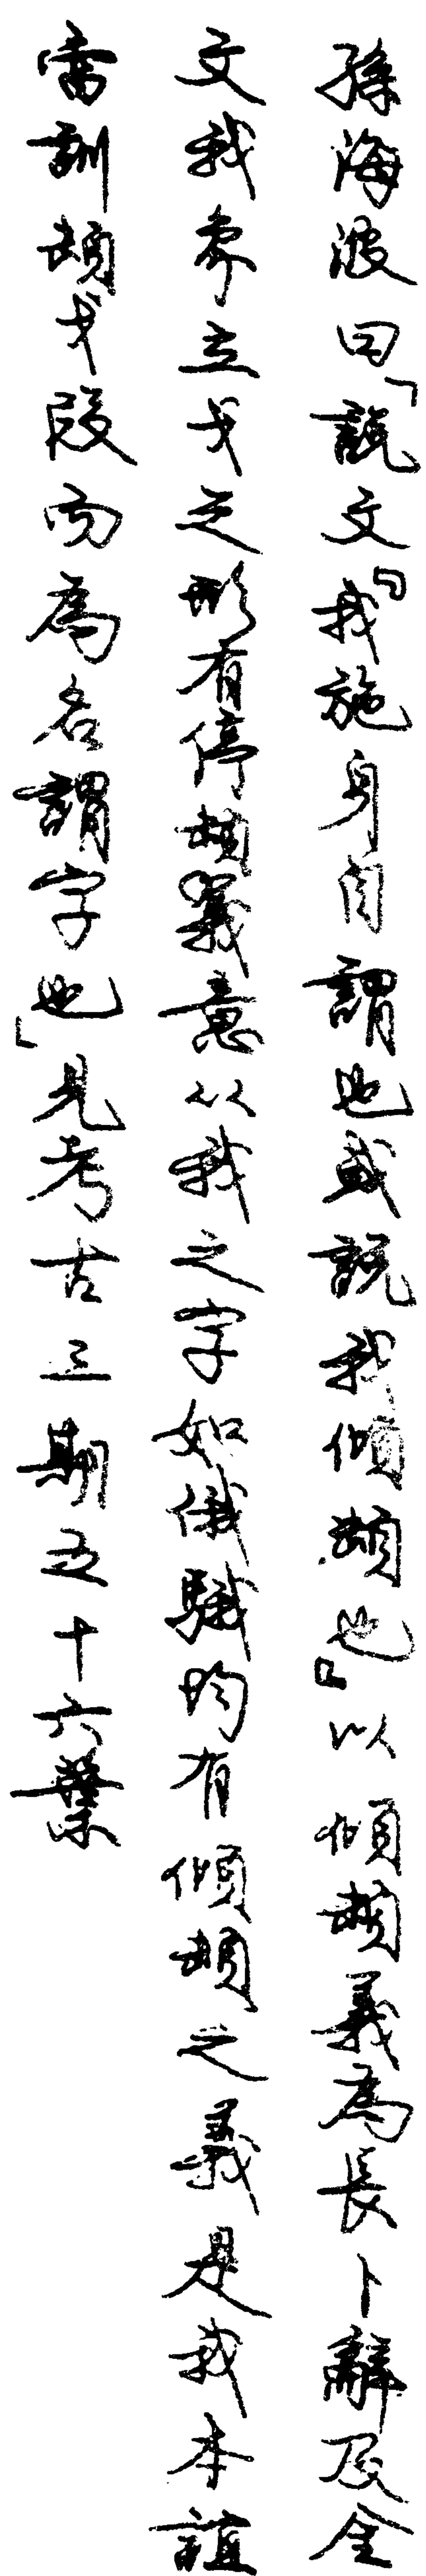 孫海波曰「說文『我施身自謂也或說我傾頓也』以傾頓義為長卜辭及金
文我象立戈之形有停頓義意从我之字如俄騀均有傾頓之義是我本誼
當訓頓戈叚而為名謂字也」見考古三期五十六葉